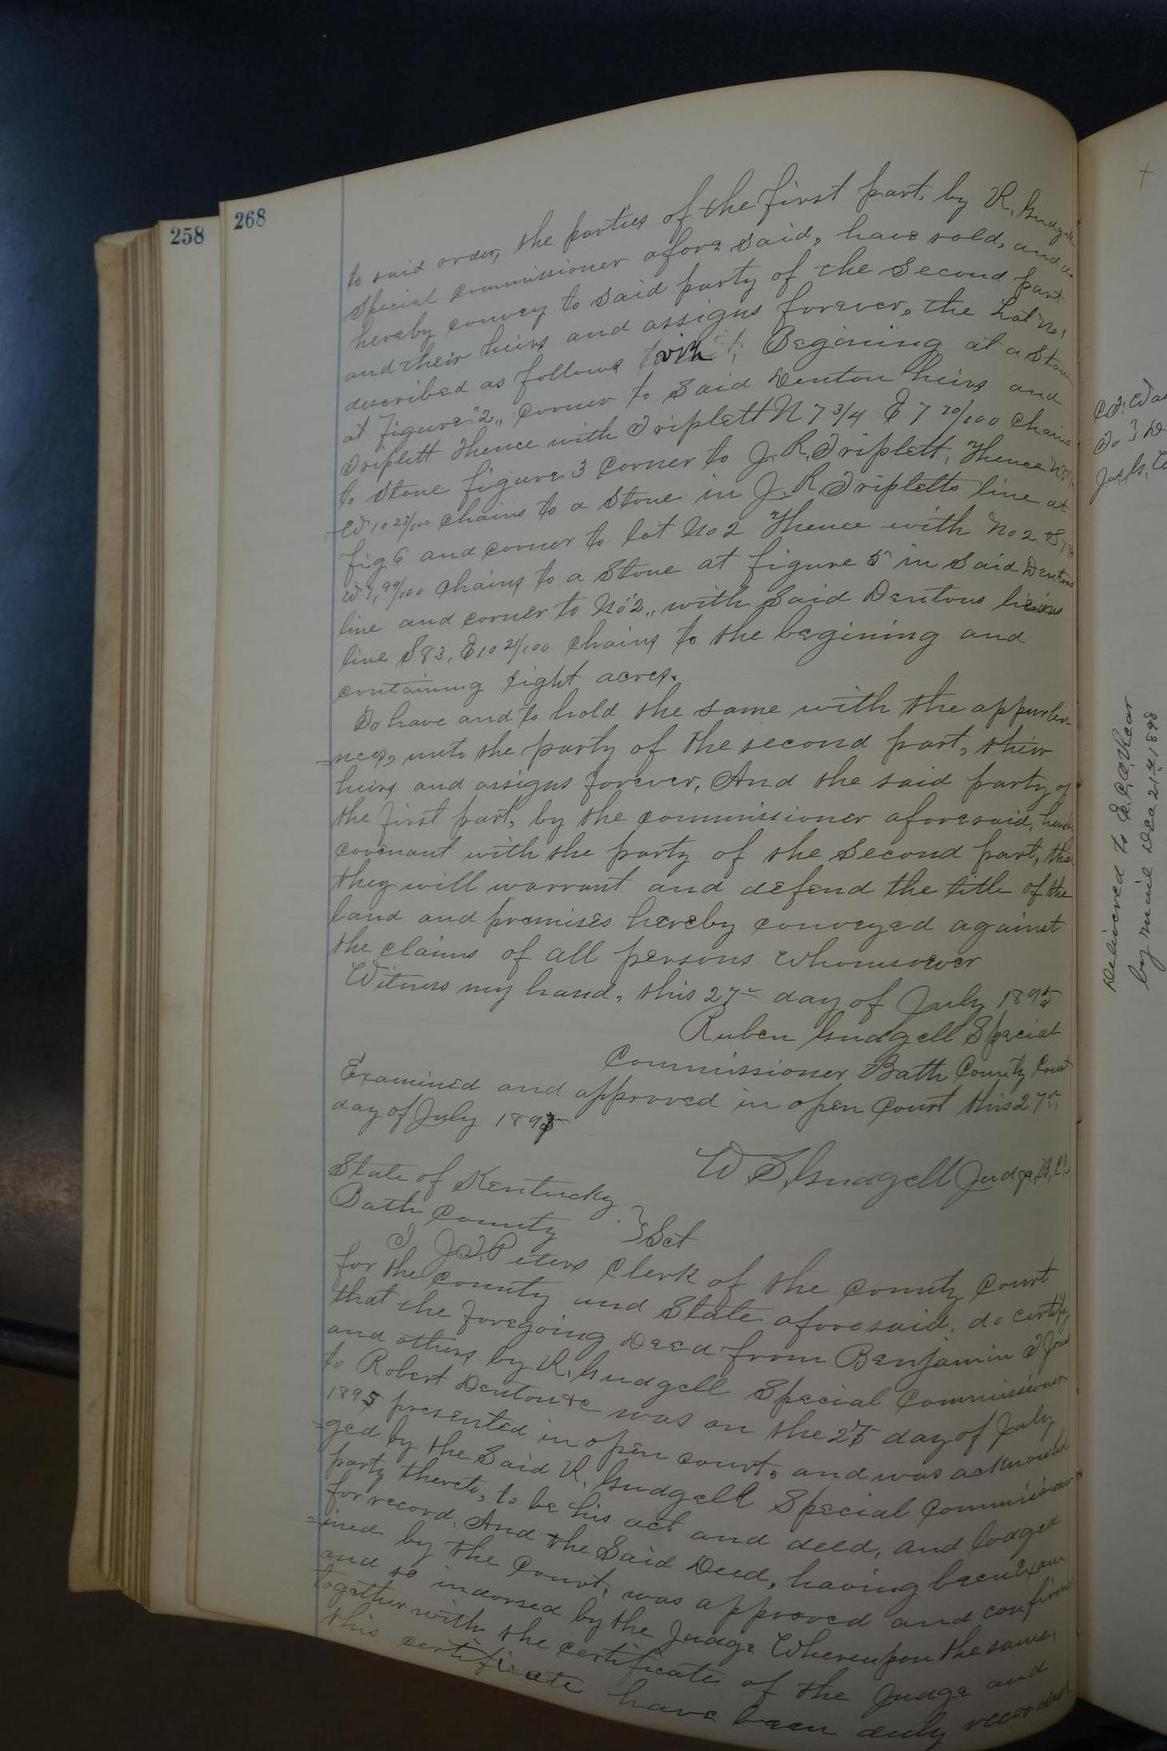 258
268
to said order, the parties of the first part, by R. Gudgell
special commissioner afore said, have sold, and do
hereby convey to said party of the Second part
and their heirs and assigns forever, the Lot No 1
described as follows towit; Begining at a Stone
at figure "2" corner to Said Denton heirs and
Triplett Thence with Triplett N 7 3/4 E 7 70/100 Chains
to Stone figure 3 corner to J. R. Triplett, Thence N
W 10 23/100 chains to a Stone in J. R. Tripletts line at
fig 6 and corner to lot No 2 Thence with No 2 S
W 7, 99/100 chains to a Stone at figure 5 in Said Dentons
line and corner to No 2, with Said Dentons
line S 83, E 10 21/100 chains to the begining and
containing eight acres.
To have and to hold the same with the appurten
=nces, unto the party of the second part, their
heirs and assigns forever, And the said party of
the first part, by the commissioner aforesaid, hereby
covenant with the party of the Second part, that
they will warrant and defend the title of the
land and premises hereby conveyed against
the claims of all persons whomsoever
Witness my hand, this 27th day of July 1895
Ruben Gudgell Special
Commissioner Bath County Court
Examined and approved in open Court this 27th
day of July 1895
W S Gudgell Judge B.C.C.
State of Kentucky
Bath County } Sct
I, J. T. Peters Clerk of the County Court
for the County and State aforesaid. do certify
that the foregoing Deed from Benjamin F Jones
and others by R. Gudgell Special Commissioner
to Robert Denton &c was on the 27 day of July
1895 presented in open court, and was acknowled
=ged by the Said R. Gudgell Special Commissioner
party thereto, to be his act and deed, and lodged
for record. And the Said Deed, having been exam
=ined by the Court, was approved and confirmed
and so indorsed by the Judge Whereupon the same,
together with the certificate of the Judge and
this certificate have been duly recorded
Delivered to
by mail Dec 21st 1898